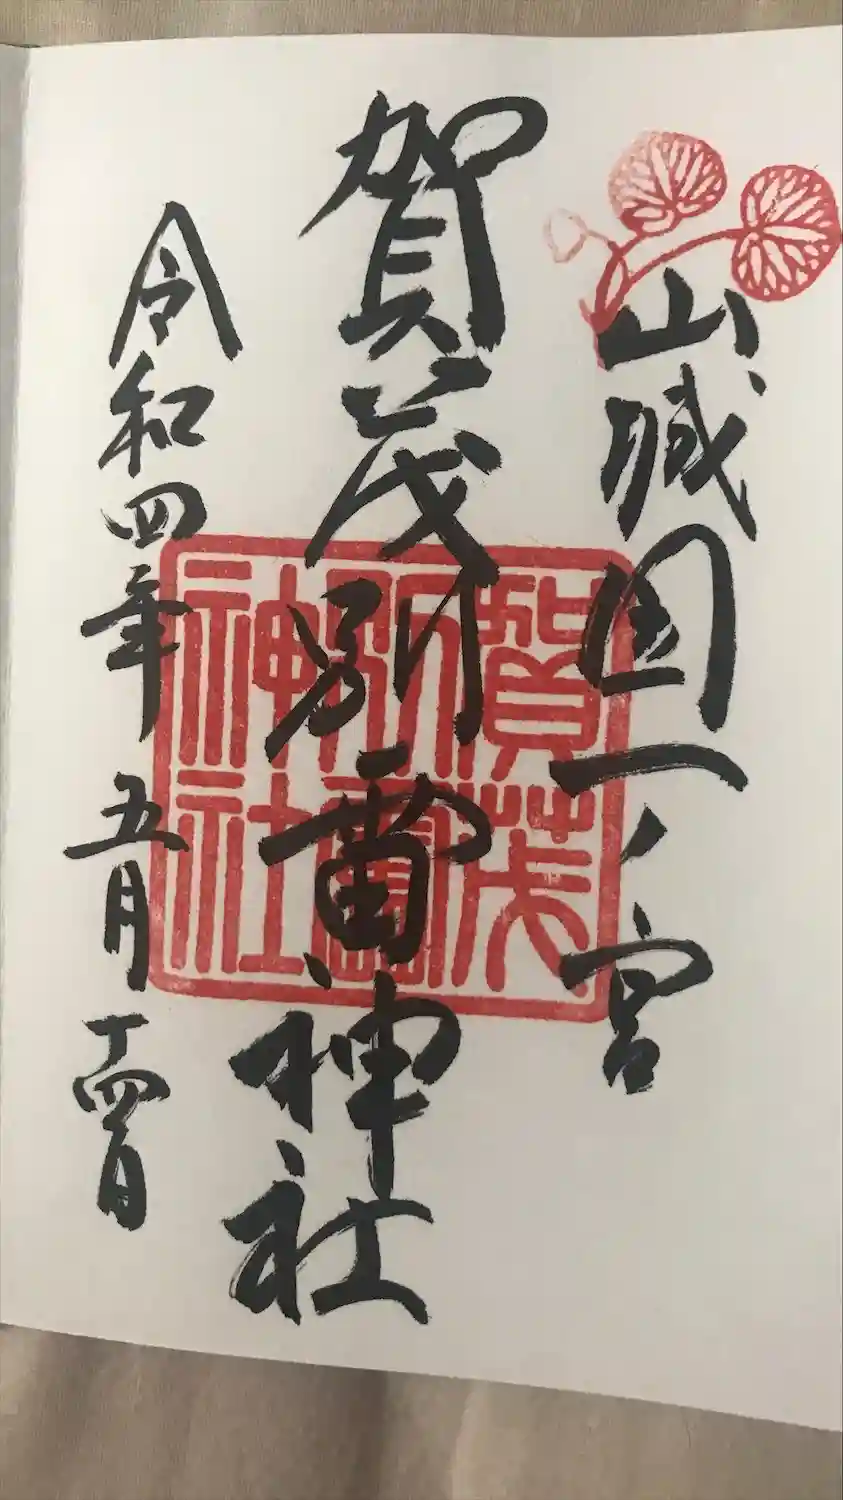 山城国一ノ宮
賀茂別雷神社
令和四年五月十四日
賀茂
別雷
神社